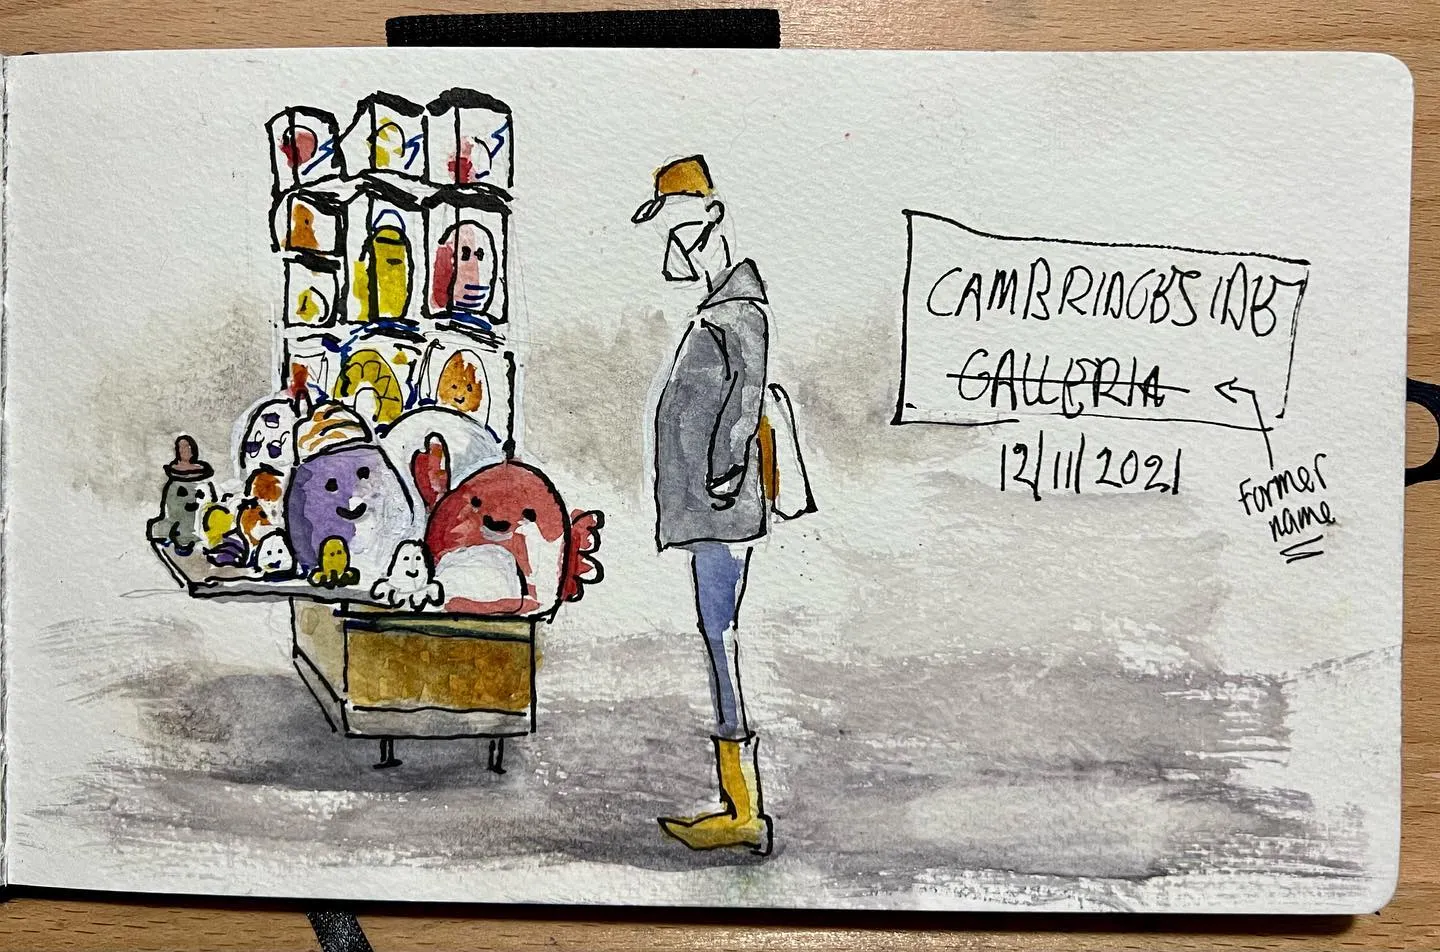 CAMBRIDGESIDE
GALLERIA
12/11/2021
Former
name